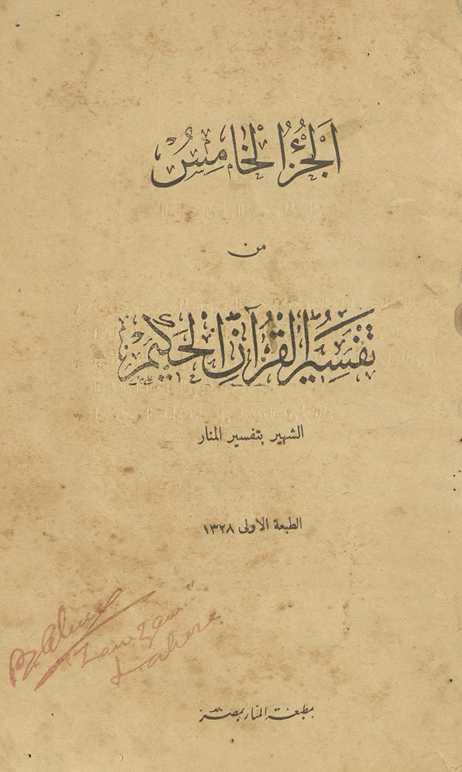 الجزء الخامس
من
تفسير القرآن الحكيم
الشهير بتفسير المنار
الطبعة الاولى ١٣٢٨
Lahore
مطبعة المنار بمصر